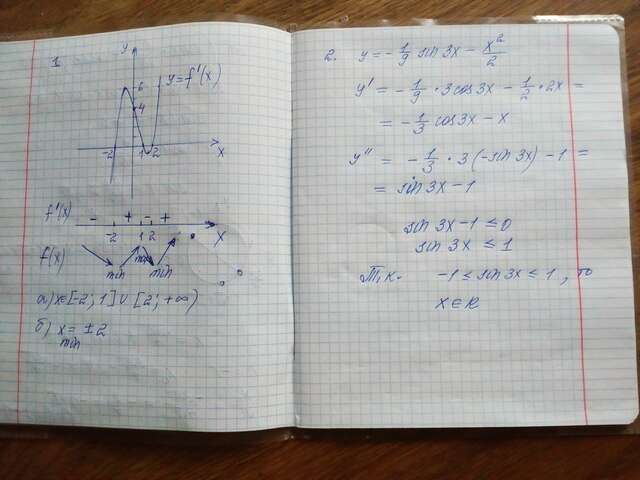 1
y
6
4
y=f'(x)
-2 1 2 x
f'(x) - + - +
-2 1 2 x
f(x) min max min
а) x∈[-2; 1] ∪ [2; +∞)
б) x = ±2
min
2. y = -1/9 sin 3x - x²/2
y' = -1/9 · 3cos 3x - 1/2 · 2x =
= -1/3 cos 3x - x
y'' = -1/3 · 3(-sin 3x) - 1 =
= sin 3x - 1
sin 3x - 1 ≤ 0
sin 3x ≤ 1
Т.к. -1 ≤ sin 3x ≤ 1, то
x ∈ R